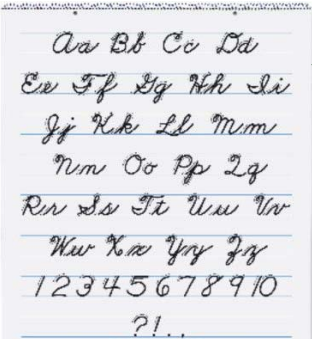 Aa Bb Cc Dd
Ee Ff Gg Hh Ii
Jj Kk Ll Mm
Nn Oo Pp Qq
Rr Ss Tt Uu Vv
Ww Xx Yy Zz
1 2 3 4 5 6 7 8 9 10
?!..